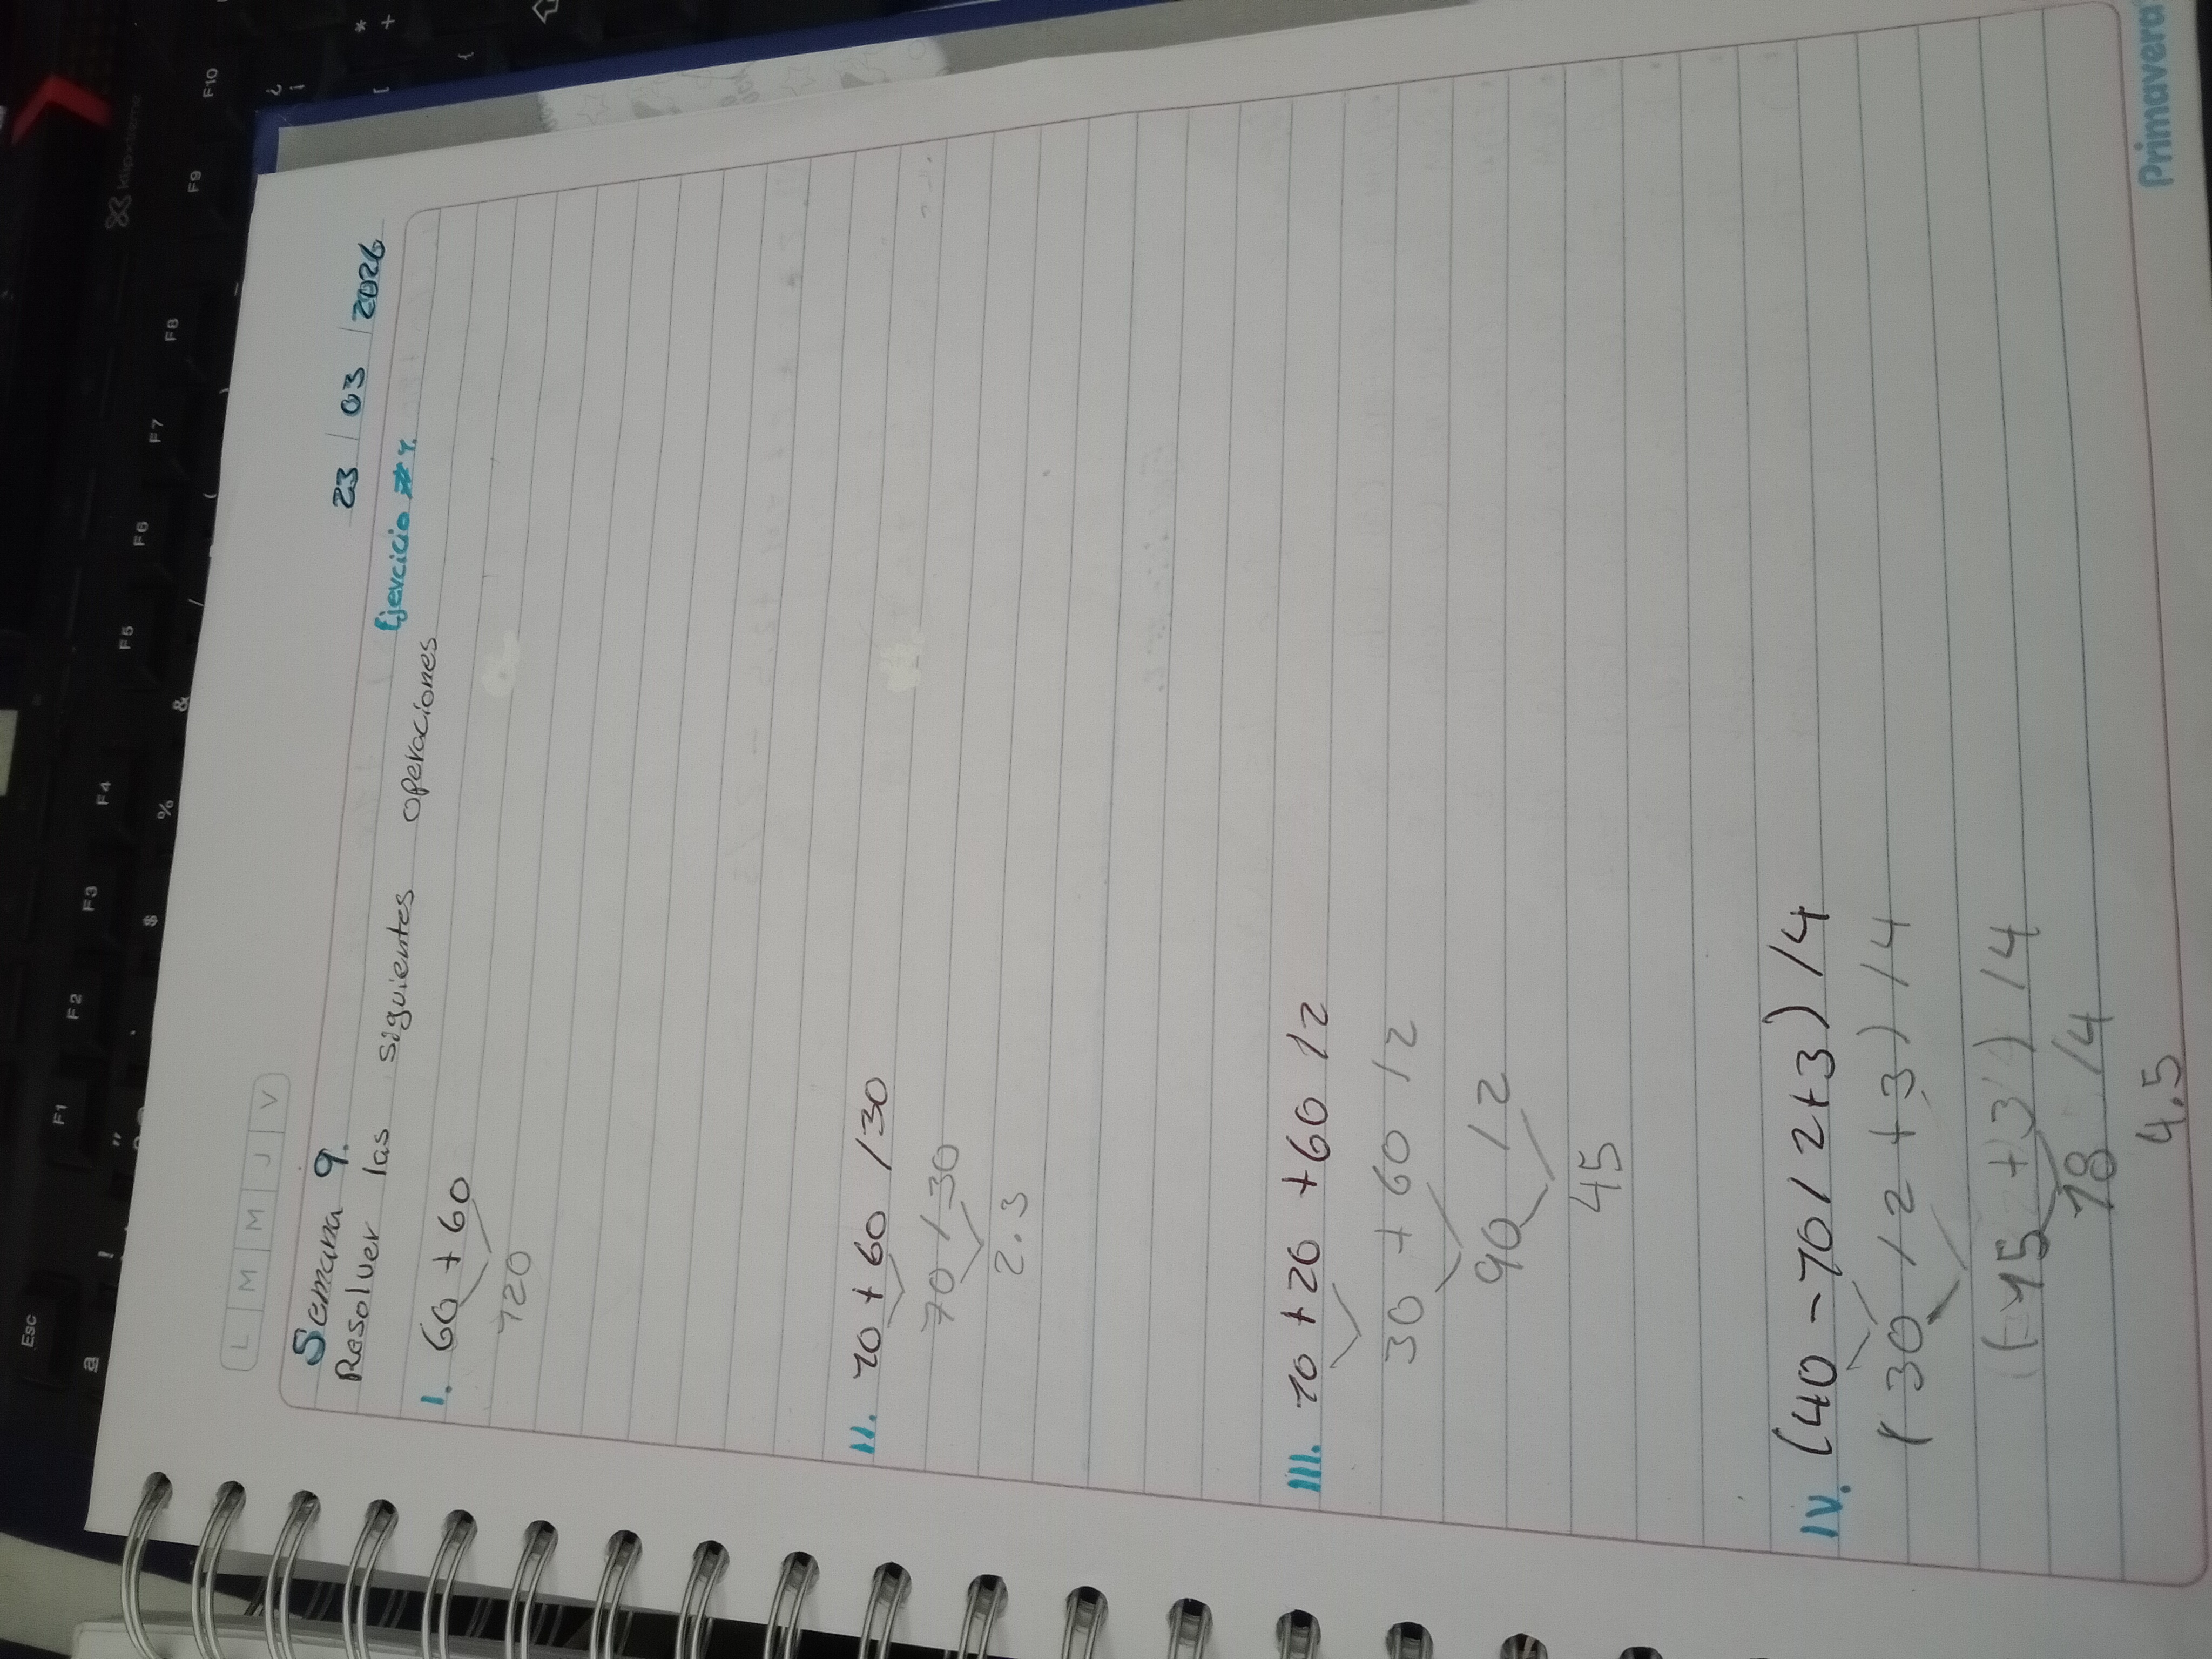 Esc F1 F2 F3 F4 F5 F6 F7 F8 F9 F10
klip xtreme
L M M J V
23 / 03 / 2026
Semana 9.
Ejercicio #1.
Resolver las siguientes operaciones
I. 60 + 60
120
II. 10 + 60 / 30
70 / 30
2.3
III. 10 + 20 + 60 / 2
30 + 60 / 2
90 / 2
45
IV. (40 - 10 / 2 + 3) / 4
( 30 / 2 + 3 ) / 4
( 15 + 3 ) / 4
18 / 4
4.5
Primavera